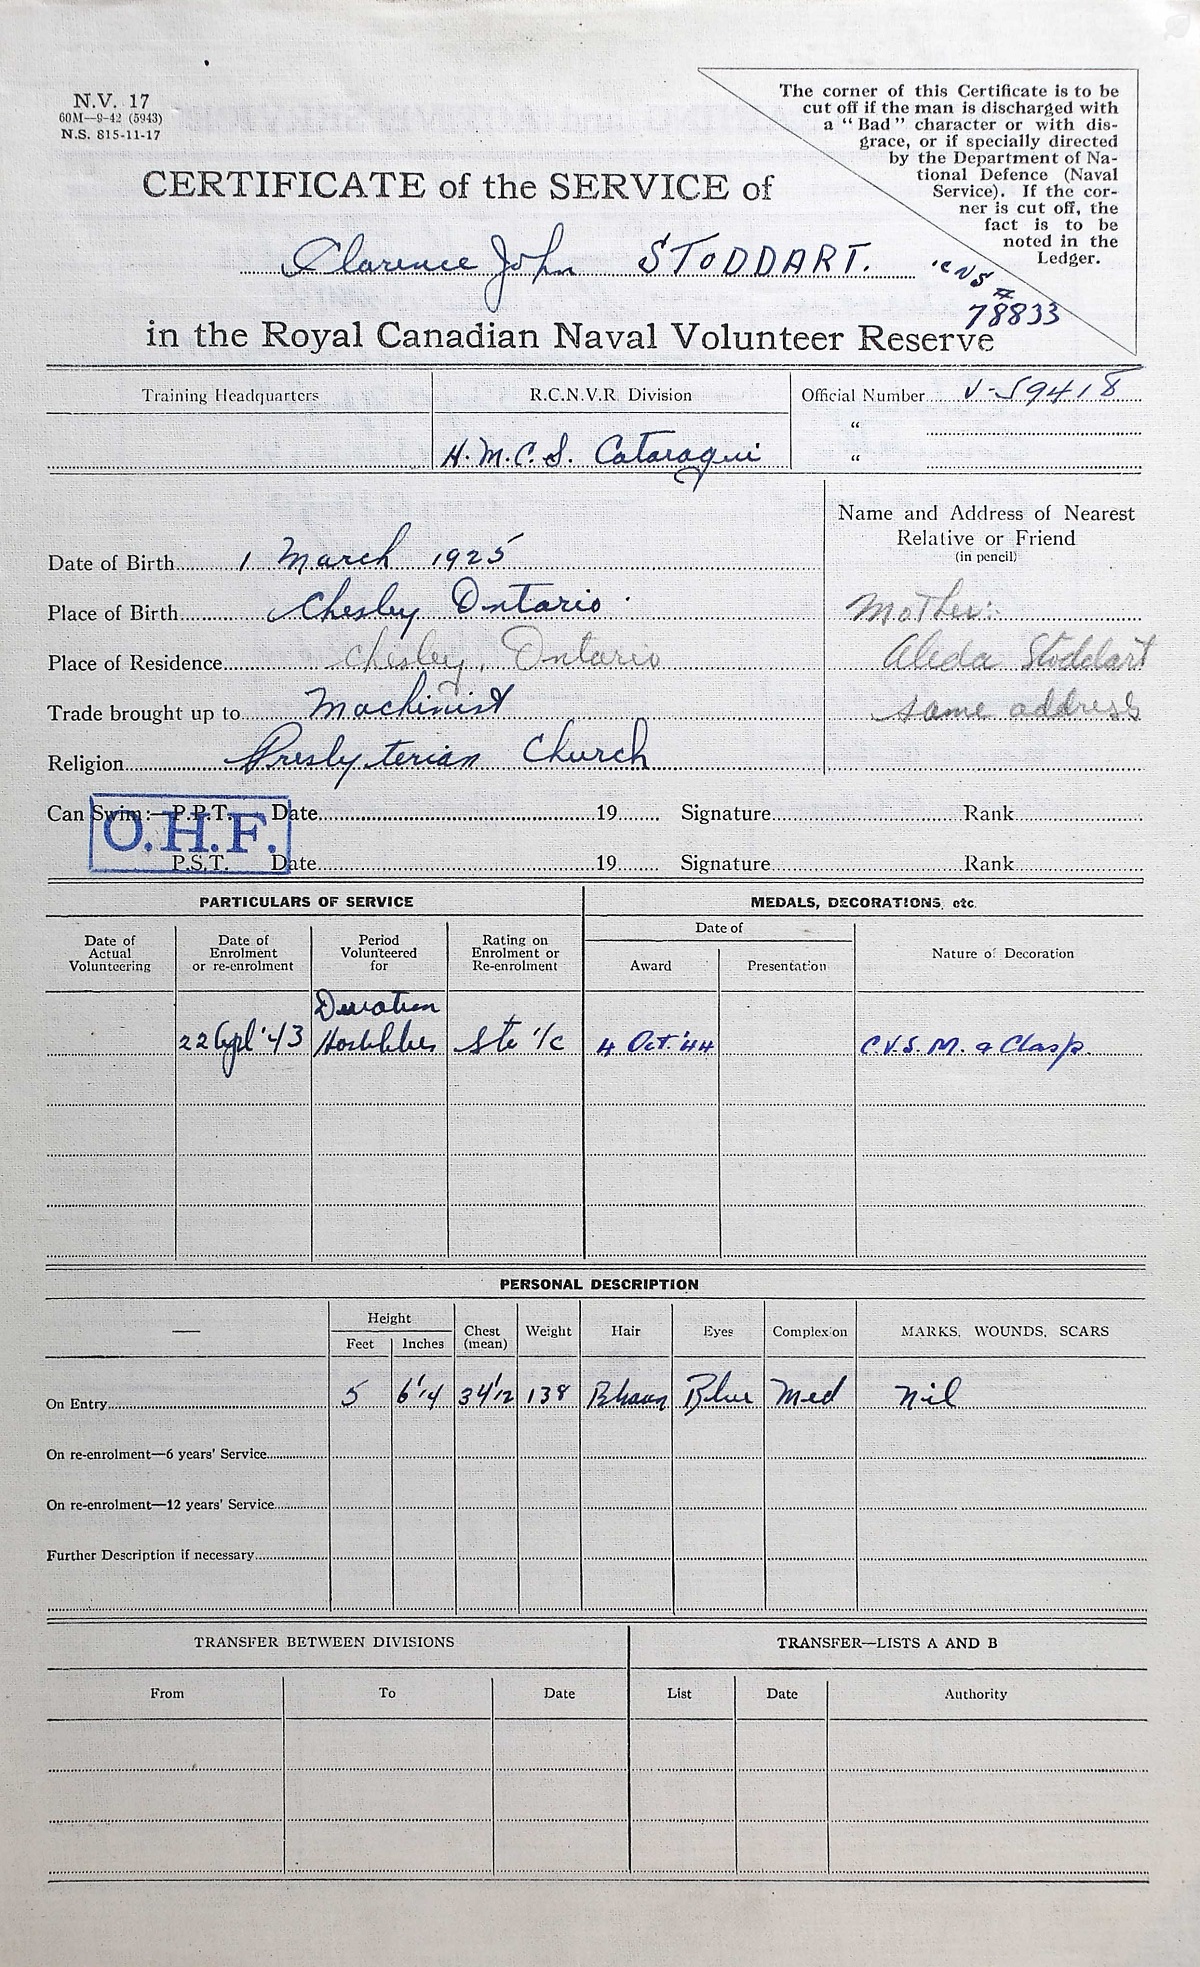 N.V. 17
60M—9-42 (5943)
N.S. 815-11-17
The corner of this Certificate is to be
cut off if the man is discharged with
a "Bad" character or with dis-
grace, or if specially directed
by the Department of Na-
tional Defence (Naval
Service). If the cor-
ner is cut off, the
fact is to be
noted in the
Ledger.
CERTIFICATE of the SERVICE of
Clarence John STODDART.
CNS #
78833
in the Royal Canadian Naval Volunteer Reserve
Training Headquarters R.C.N.V.R. Division Official Number V-59418
"
H.M.C.S. Cataraqui "
Name and Address of Nearest
Relative or Friend
(in pencil)
Date of Birth 1 March 1925
Place of Birth Chesley Ontario Mother:
Place of Residence Chesley, Ontario Aleda Stoddart
Trade brought up to Machinist same address
Religion Presbyterian Church
Can Swim:—P.P.T. Date 19 Signature Rank
O.H.F.
P.S.T. Date 19 Signature Rank
PARTICULARS OF SERVICE MEDALS, DECORATIONS, etc.
Date of Actual Volunteering Date of Enrolment or re-enrolment Period Volunteered for Rating on Enrolment or Re-enrolment Date of Nature of Decoration
Award Presentation
Duration
22 Apl '43 Hostilities Sto 1/c 4 Oct. '44 C.V.S.M. & Clasp.
PERSONAL DESCRIPTION
— Height Chest (mean) Weight Hair Eyes Complexion MARKS, WOUNDS, SCARS
Feet Inches
On Entry 5 6 1/4 34 1/2 138 Brown Blue Med Nil
On re-enrolment—6 years' Service
On re-enrolment—12 years' Service
Further Description if necessary
TRANSFER BETWEEN DIVISIONS TRANSFER—LISTS A AND B
From To Date List Date Authority